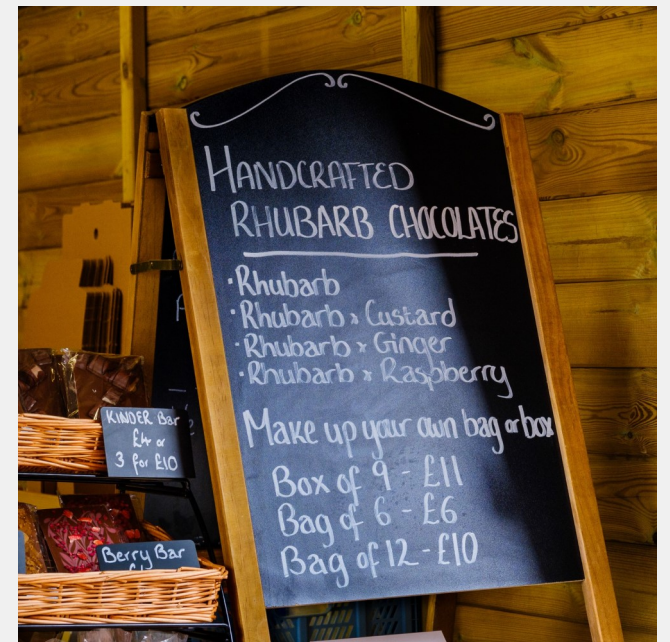 HANDCRAFTED
RHUBARB CHOCOLATES
· Rhubarb
· Rhubarb & Custard
· Rhubarb & Ginger
· Rhubarb & Raspberry
Make up your own bag or box
Box of 9 - £11
Bag of 6 - £6
Bag of 12 - £10
KINDER Bar
£4 or
3 for £10
Berry Bar